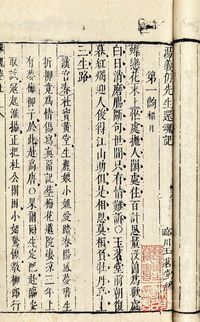 湯義仍先生還魂記
臨川
第一齣 標目
蝶戀花末上忙處拋人閒處住百計思量沒箇為歡處
白日消磨腸斷句世間只有情難訴○玉茗堂前朝復
暮紅燭迎人俊得江山助但是相思莫相負牡丹亭上
三生路
漢宮春杜寶黃堂生麗娘小姐愛踏春陽感夢書生
折柳竟為情傷寫真留記葬梅花道院淒涼三年上
有夢梅柳子於此赴高唐○果爾回生定配赴臨安
取試寇起淮揚正把杜公圍困小姐驚惶教柳郎行